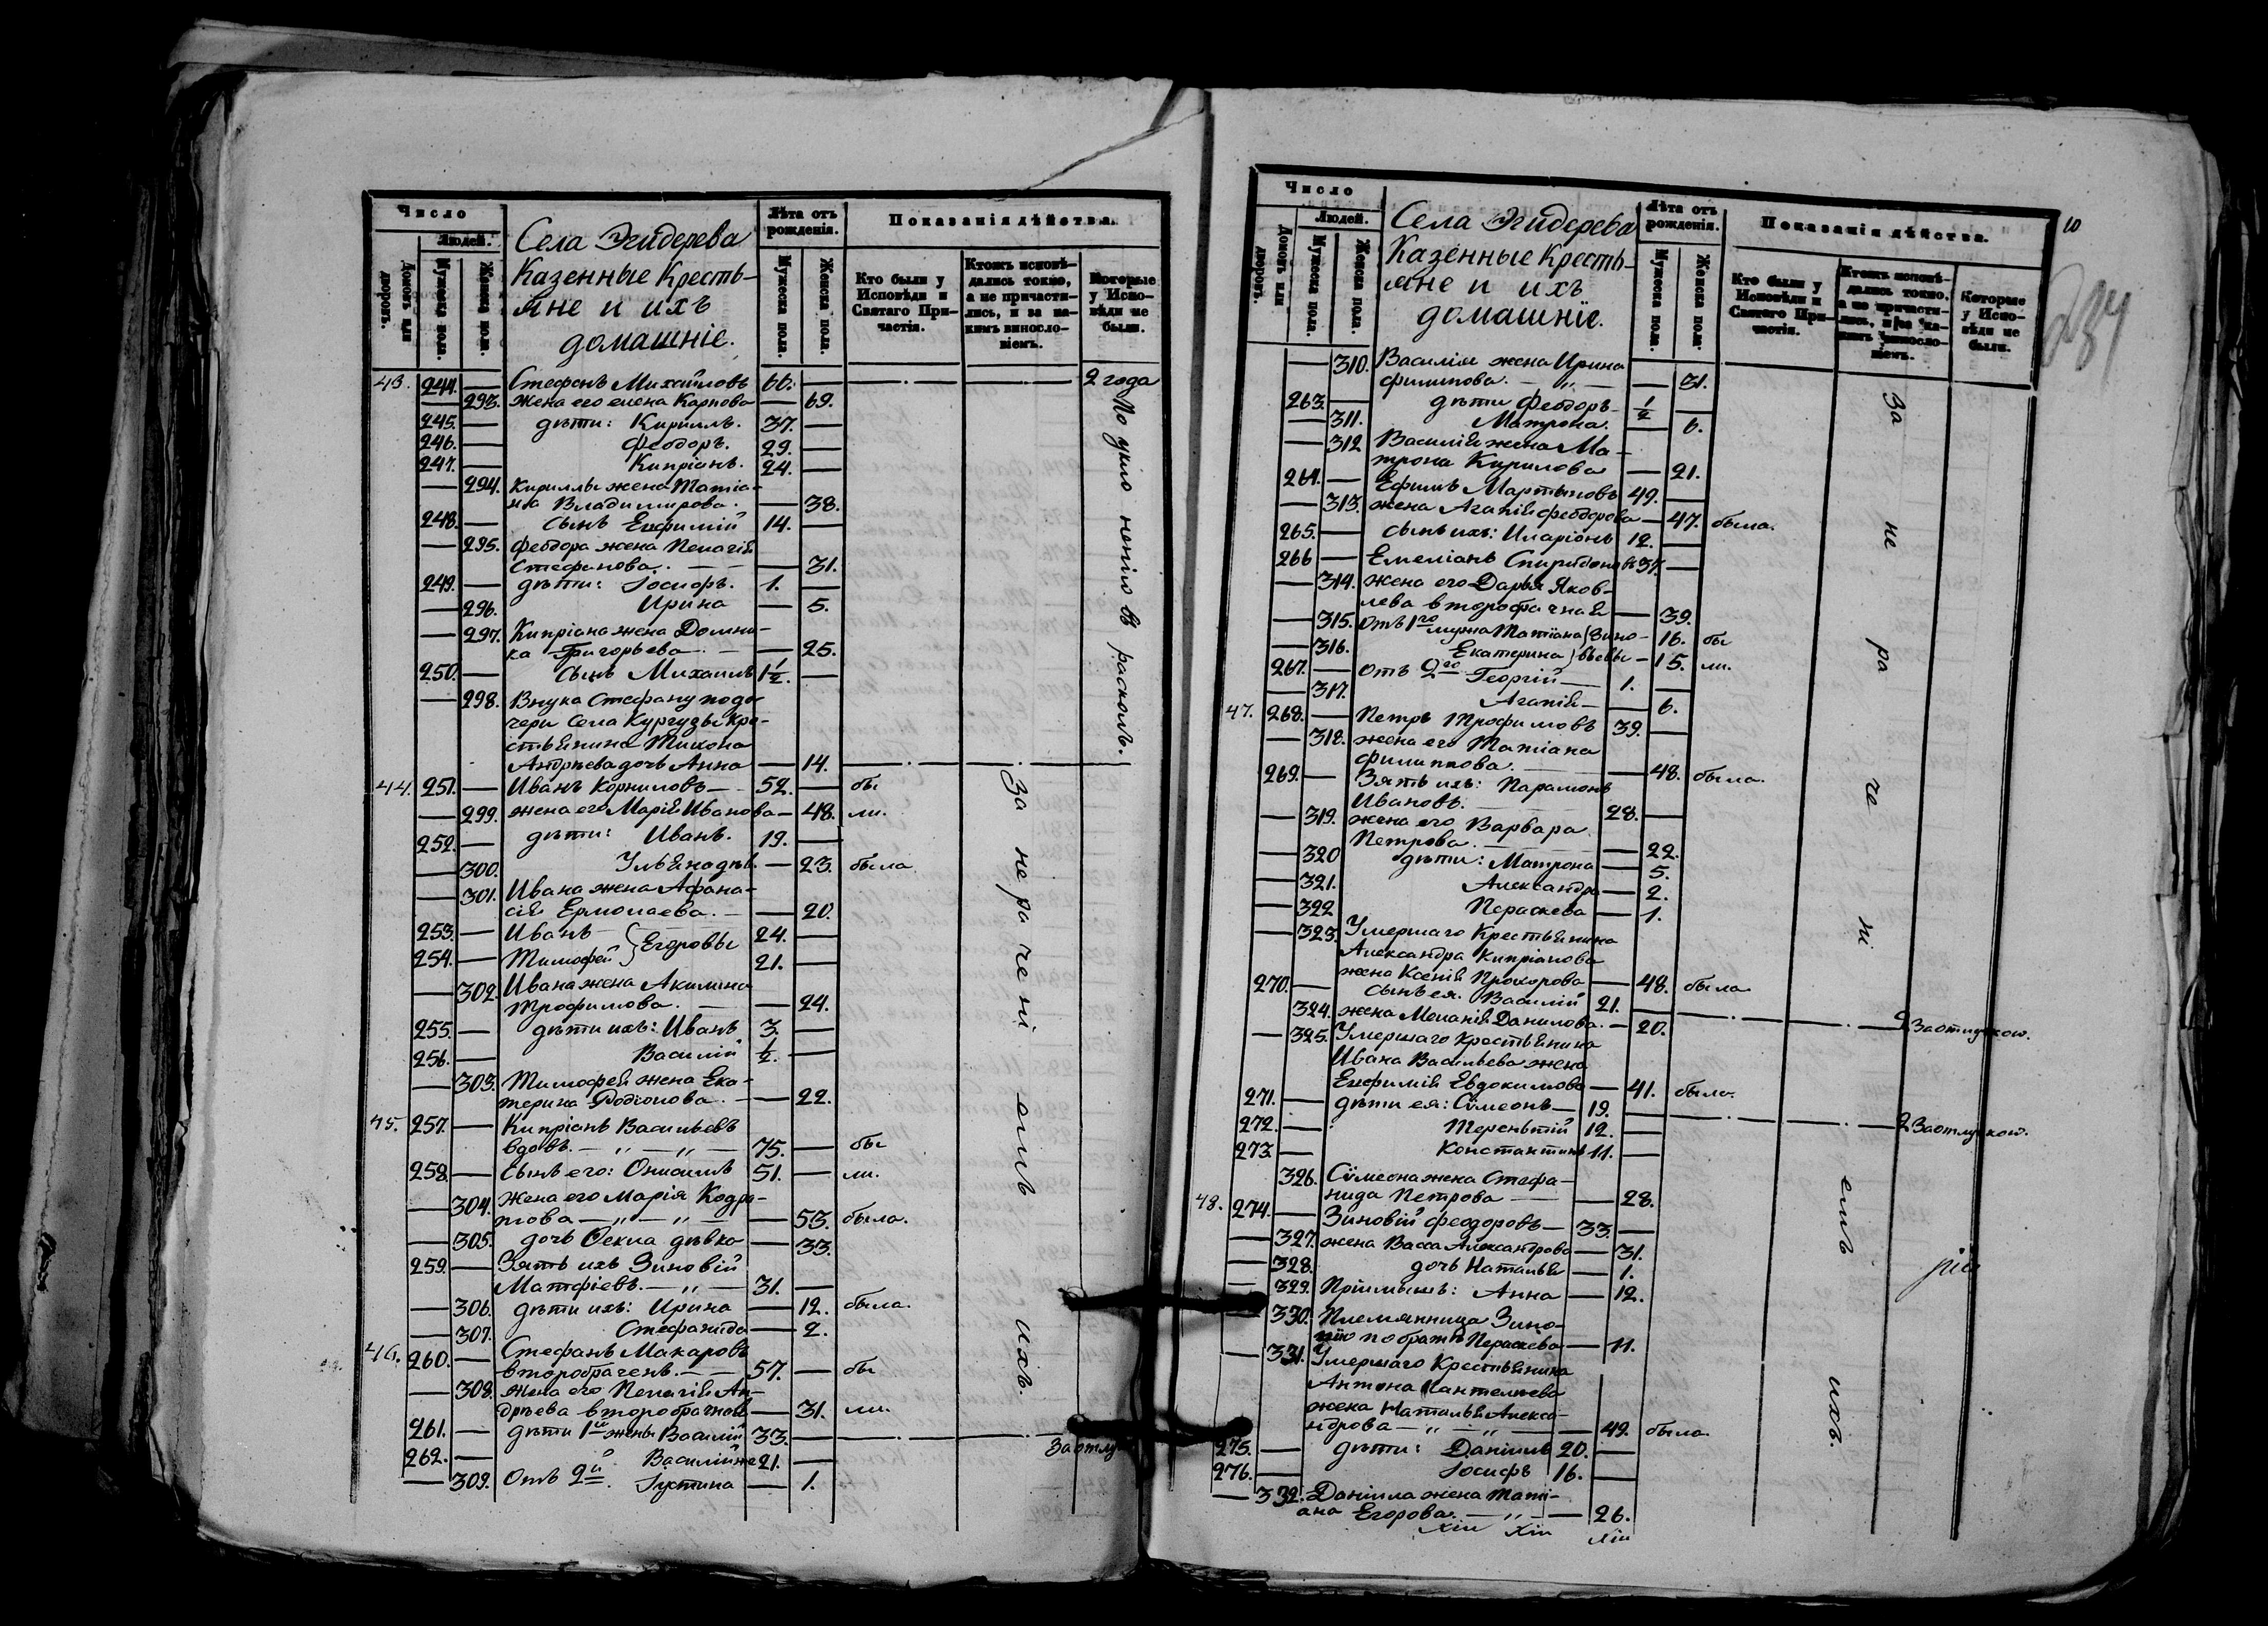 Число
Людей.
Домовъ или дворовъ.
Мужеска пола.
Женска пола.
Села Эгидерева
Казенные Кресть-
яне и ихъ
домашніе.
Лѣта отъ рожденія.
Мужеска пола.
Женска пола.
Показанія дѣйства.
Кто были у Исповѣди и Святаго При-частія.
Ктожъ исповѣ-дались токмо, а не причасти-лись, и за ка-кимъ винослo-віемъ.
Которые у Испо-вѣди не были.
43. 244. — Стефанъ Михайловъ 66. — 2 года
— 293. жена его елена Карпова — 69.
245. — дѣти: Кириллъ. 37. —
246. — Феодоръ. 29. —
247. — Кипріанъ. 24. —
— 294. Кириллы жена Татіа-
на Владимирова. — 38.
248. — сынъ Евфимій 14. —
— 295. Феодора жена Пелагія
Стефанова. — 31.
249. — дѣти: Іосифъ. 1. —
— 296. Ирина — 5.
— 297. Кипріана жена Домни-
ка Григорьева — 25.
250. — сынъ Михаилъ 1½. —
— 298. Внука Стефану по до-
чери Села Кургузы Кре-
стьянина Тихона
Андрѣева дочь Анна — 14.
По укло ненію въ расколъ.
44. 251. — Иванъ Корниловъ — 52. — бы
— 299. жена его Марія Иванова — 48. ли.
252. — дѣти: Иванъ. 19. —
— 300. Ульяна дѣв. — 23. была
— 301. Ивана жена Афана-
сія Ермолаева. — 20.
253. — Иванъ } Егоровы 24. —
254. — Тимофей 21. —
— 302. Ивана жена Акилина
Трофимова. — 24.
255. — дѣти ихъ: Иванъ 3. —
256. — Василій ½. —
— 303. Тимофея жена Ека-
терина Родіонова. — 22.
45. 257. — Кипріанъ Васильевъ
вдовъ. — „ — „ — 75. — бы
258. — сынъ его: Онисимъ 51. — ли.
— 304. Жена его Марія Кодра-
това — „ — „ — 53. была.
— 305. дочь Ѳекла дѣвка — 33.
259. — Зять ихъ Зиновій
Матфіевъ. — „ — 31. —
— 306. дѣти ихъ: Ирина — 12. была.
— 307. Стефанида — 2.
46. 260. — Стефанъ Макаровъ
второбраченъ. — 57. — бы
— 308. жена его Пелагія Ан-
дрѣева второбрачная — 31. ли.
261. — дѣти 1й жены Василій 33. — За отлу
262. — Василій же 21. —
— 309. Отъ 2й. Іустина — 1.
За не ра че ні емъ ихъ.
10
Число
Людей.
Домовъ или дворовъ.
Мужеска пола.
Женска пола.
Села Эгидерева
Казенные Кресть-
яне и ихъ
домашніе.
Лѣта отъ рожденія.
Мужеска пола.
Женска пола.
Показанія дѣйства.
Кто были у Исповѣди и Святаго При-частія.
Ктожъ исповѣ-дались токмо, а не причасти-лись, и за ка-кимъ винослo-віемъ.
Которые у Испо-вѣди не были.
— 310. Василія жена Ирина
филипова. — „ — 31.
263. — дѣти Феодоръ ½ —
— 311. Матрона. — 6.
— 312 Василія жена Ма-
трона Кирилова — 21.
264. — Ефимъ Мартыновъ 49. —
— 313. жена Агапія Феодорова — 47. была.
265. — сынъ ихъ: Иларіонъ 12. —
266 — Емеліанъ Спиридоновъ 37. —
— 314. жена его Дарья Яков-
лева второбрачная — 39.
— 315. Отъ 1го мужа Татіана } Зино- 16. бы
— 316. Екатерина } вьевы — 15. ли.
267. — отъ 2го Георгій — 1. —
— 317. Агапія — 6.
47. 268. — Петръ Трофимовъ 39. —
— 318. жена его Татіана
филиппова. — 48. была.
269. — Зять ихъ: Парамонъ
Ивановъ. 28. —
— 319. жена его Варвара
Петрова. — 22.
— 320 дѣти: Матрона — 5.
— 321. Александра — 2.
— 322 Параскева — 1.
— 323. Умершаго Крестьянина
Александра Кипріанова
жена Ксенія Прохорова — 48. была
270. — сынъ ея. Василій 21. —
324. жена Меланія Данилова. — 20. 2 За отлучкою.
— 325. Умершаго Крестьянина
Ивана Васильева жена
Евфимія Евдокимова — 41. была.
271. — дѣти ея: Сѵмеонъ — 19.
272. — Терентій 12. — 2 За отлучкою.
273. — Константинъ 11. —
326. Сѵмеона жена Стефа-
нида Петрова — 28.
48. 274. — Зиновій Феодоровъ — 33. —
— 327. жена Васса Александрова — 31.
— 328. дочь Наталья — 1.
— 329. Пріимышъ: Анна — 12.
— 330. Племянница Зино-
вію по братѣ Параскева — 11.
— 331. Умершаго Крестьянина
Антона Пантелѣева
жена Наталья Алекса-
ндрова — „ — „ — 49. была.
275. — дѣти: Даніилъ 20. —
276. — Іосифъ 16. —
— 332. Даніила жена Тати-
ана Егорова. — „ — 26.
За не ра че ні емъ ихъ.